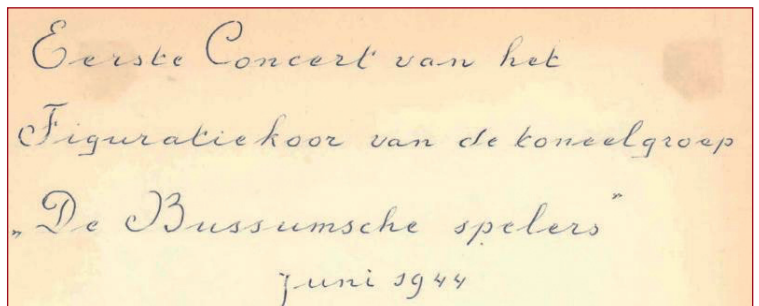 Eerste Concert van het
Figuratiekoor van de toneelgroep
„De Bussumsche spelers”
juni 1944